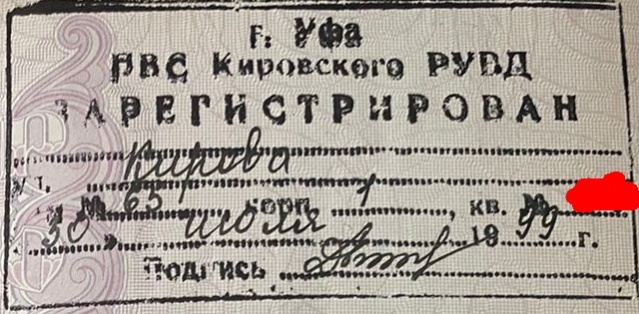 г. Уфа
ПВС Кировского РУВД
ЗАРЕГИСТРИРОВАН
Кирова
ул.
д № 65 корп. 1, кв. №
"30" июля 1999 г.
Подпись